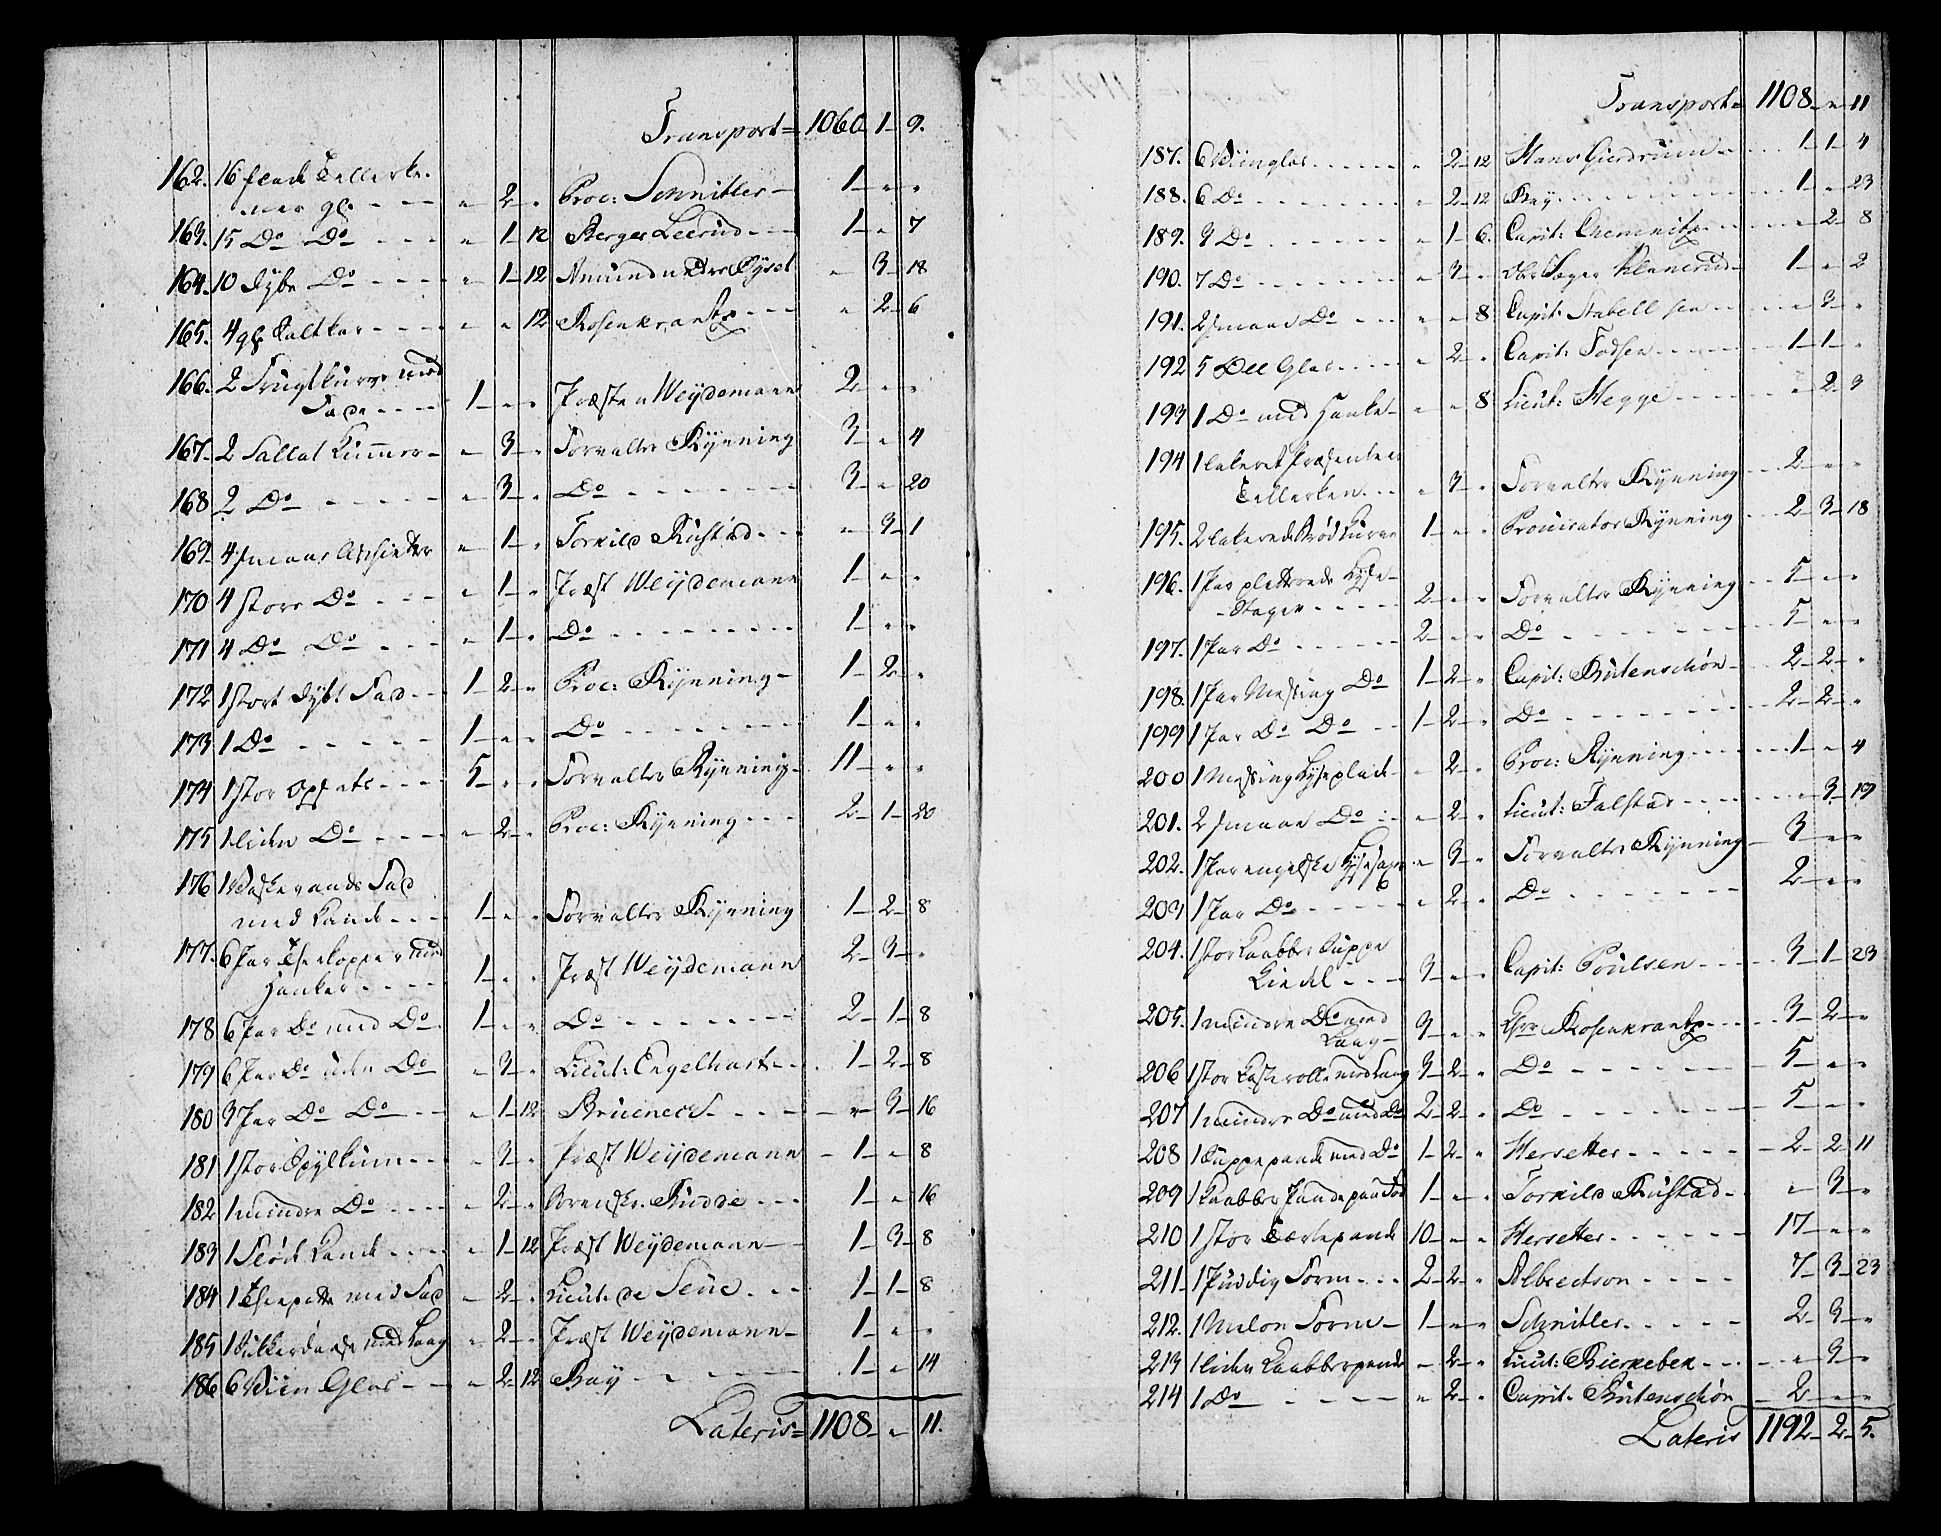 Transport = 1060 - 1 - 9.
162. 16 flade Tellerke-
ner gl. - - " 2 - " Proc: Schnitler - 1 - " "
163. 15 Do Do - - - " 1 - 12 Berger Leerud - - - 1 - " 7
164. 10 dybe Do - - - - " 1 - 12 Amund " 3 - 18
165. 4 gl. Saltkar - - - - " " 12 Rosenkrantz - - - " 2 - 6
166. 2 Frugtkurve med
Fade - - - - 1 - " " Præsten Weydemann 2 - " "
167. 2 Sallat Kummer - " 3 - " Forvalter Rynning 3 - " 4
168 2 Do - - - - - " 3 - " Do - - - - - - - 3 - " 20
169. 4 smaae Assietter " 1 - " Torkild Rustad - - - " 3 - 1
170 4 store Do - - - " 1 - " Præst Weydemann 1 - " "
171 4 Do Do - - - " 1 - " Do - - - - - - - 1 - " "
172 1 stort dybt Fad - - 1 - 2 - " Proc: Rynning - 1 - 2 - "
173 1 Do - - - - - 1 - " " Do - - - - - - - 1 - " "
174 1 stor Opsats - - - 5 - " " Forvalter Rynning - 11 - " "
175 1 liden Do - - - - " 2 - " Proc: Rynning - - - 2 - 1 - 20
176 1 Vaskevands Fad
med Kande - - - 1 - " " Forvalter Rynning 1 - 2 - 8
177. 6 Par Theekopper med
Hanker - - - - 1 - " " Præst Weydemann 2 - 3 - "
178 6 Par Do med Do. 1 - " " Do - - - - - - - 2 - 1 - 8
179 6 Par Do uden Do " 3 - " Lieut: Engelhart - - 1 - 2 - 8
180 3 Par Do Do - - - " 1 - 12 Bruenech - - - - " 3 - 16
181 1 stor Spylkum - - - " 3 - " Præst Weydemann - 1 - " 8
182 1 mindre Do - - - - " 2 - " Budde - - - 1 - " 16
183 1 Fløde Kande - - - - " 1 - 12 Præst Weydemann - 1 - 3 - 8
184 1 Theepotte med Fad " 2 - " Lieut: de Seue - - - 1 - 1 - 8
185 1 Sukkerdaase med Laag " 2 - " Præst Weydemann - 1 - " "
186 6 Viin Glas - - - " 2 - 12 Bay - - - - - - 1 - " 14
Lateris = 1108 - " 11.
Transport = 1108 - " 11
187. 6 Viinglas - - - - - " 2 - 12 Hans Gierdrum - - - 1 - 1 - 4
188. 6 Do - - - - - - - " 2 - 12 Bay - - - - - - - 1 - " 23
189. 3 Do - - - - - - " 1 - 6. Capit: Chemnitz - - - " 2 - 8
190. 7 Do - - - - - - " 3 - " 1 - " 2
191. 2 smaae Do - - - " " 8 Capit: Stabell sen - - - " 3 - "
192 5 Øll Glas - - - - " 2 - " Capit: Todsen - - - - 1 - 1 - "
193 1 Do med Hanke - " " 8 Lieut: Hegge - - - - - " 2 - 3
194 1 lakeret Præsenteer
Tellerken - - - " 3 - " Forvalter Rynning - - 2 - " "
195. 2 lakerede Brød Kurve 1 - " " Procurator Rynning - - 2 - 3 - 18
196. 1 Par pletterede Lyse-
- Stager - - - - - 2 - " " Forvalter Rynning - - 5 - " "
197. 1 Par Do - - - - - 2 - " " Do - - - - - - - 5 - " "
198. 1 Par Messing Do 1 - 2 - " Capit: Butenschøn - - - 2 - 2 - "
199 1 Par Do Do - - 1 - 2 - " Do - - - - - - - 2 - 2 - "
200 1 Messing Lyseplade - " 2 - " Proc: Rynning - - - - - 1 - " 4
201. 2 smaae Do - - " 2 - " Lieut: Falstad - - - - - - " 3 - 19
202. 1 Par engelske Lysesaxe " 3 - " Forvalter Rynning - 3 - " "
203 1 Par Do - - - - - " 2 - " Do - - - - - - - 2 - " "
204. 1 stor Kaabber Suppe
Kiedel - - - 3 - " " Capit: Poulsen - - - - - 3 - 1 - 23
205. 1 mindre Do med
Laag - 3 - " " Rosenkrantz - - - - 3 - 2 - "
206 1 stor Kasterolle med Laag 3 - 2 - " Do - - - - - - - 5 - " "
207 1 mindre Do med Do 2 - 2 - " Do - - - - - - - 5 - " "
208 1 Suppepande med Do 1 - 2 - " Hersetter - - - - - 2 - 2 - 11
209 1 Kaabber Pande paa Fod 1 - " " Torkild Rustad - - " 3 - "
210 1 stor Tærtepande 10 - " " Hersetter - - - - - - 17 - " "
211 1 Puddig Form - - - 2 - 2 - " Albrectson - - - - 7 - 3 - 23
212. 1 Melon Form - 1 - " " Schnitler - - - - - 2 - 3 - "
213 1 liden Kaabberpande - 2 - " Lieut: Bierkebek - - - - " 3 - "
214 1 Do - - - - " 2 - " Capit: Butenschøn - 2 - " "
Lateris 1192 - 2 - 5.